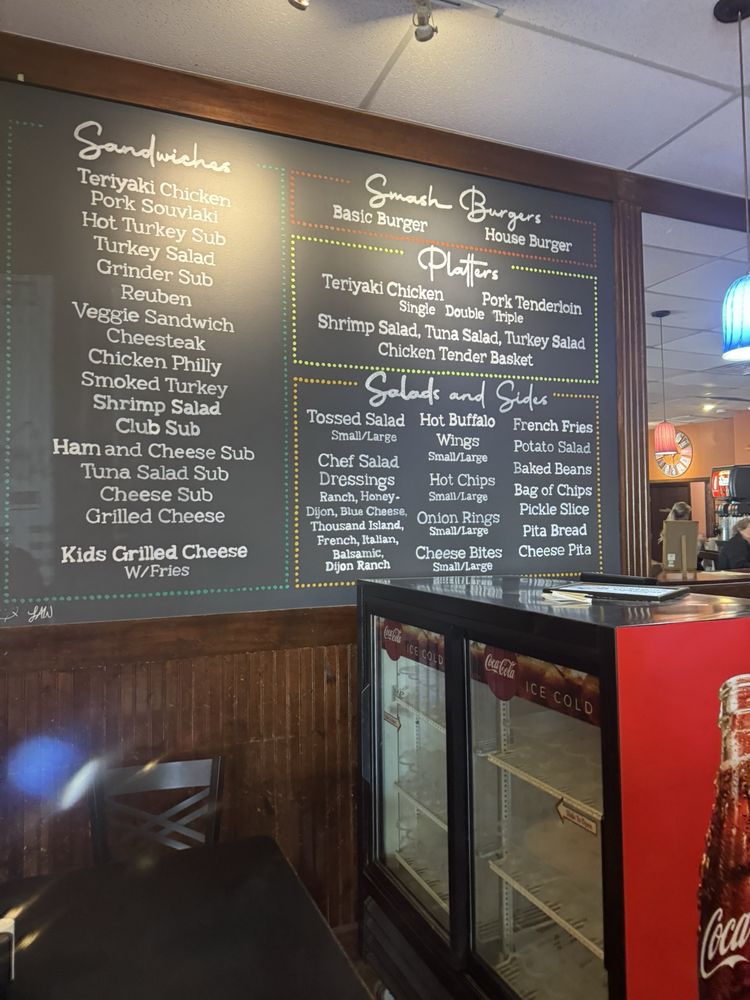 Sandwiches
Teriyaki Chicken
Pork Souvlaki
Hot Turkey Sub
Turkey Salad
Grinder Sub
Reuben
Veggie Sandwich
Cheesteak
Chicken Philly
Smoked Turkey
Shrimp Salad
Club Sub
Ham and Cheese Sub
Tuna Salad Sub
Cheese Sub
Grilled Cheese
Kids Grilled Cheese
W/Fries
Smash Burgers
Basic Burger House Burger
Platters
Teriyaki Chicken Pork Tenderloin
Single Double Triple
Shrimp Salad, Tuna Salad, Turkey Salad
Chicken Tender Basket
Salads and Sides
Tossed Salad
Small/Large
Chef Salad
Dressings
Ranch, Honey-
Dijon, Blue Cheese,
Thousand Island,
French, Italian,
Balsamic,
Dijon Ranch
Hot Buffalo
Wings
Small/Large
Hot Chips
Small/Large
Onion Rings
Small/Large
Cheese Bites
Small/Large
French Fries
Potato Salad
Baked Beans
Bag of Chips
Pickle Slice
Pita Bread
Cheese Pita
Coca-Cola ICE COLD
Coca-Cola ICE COLD
Slide To Open
Coca